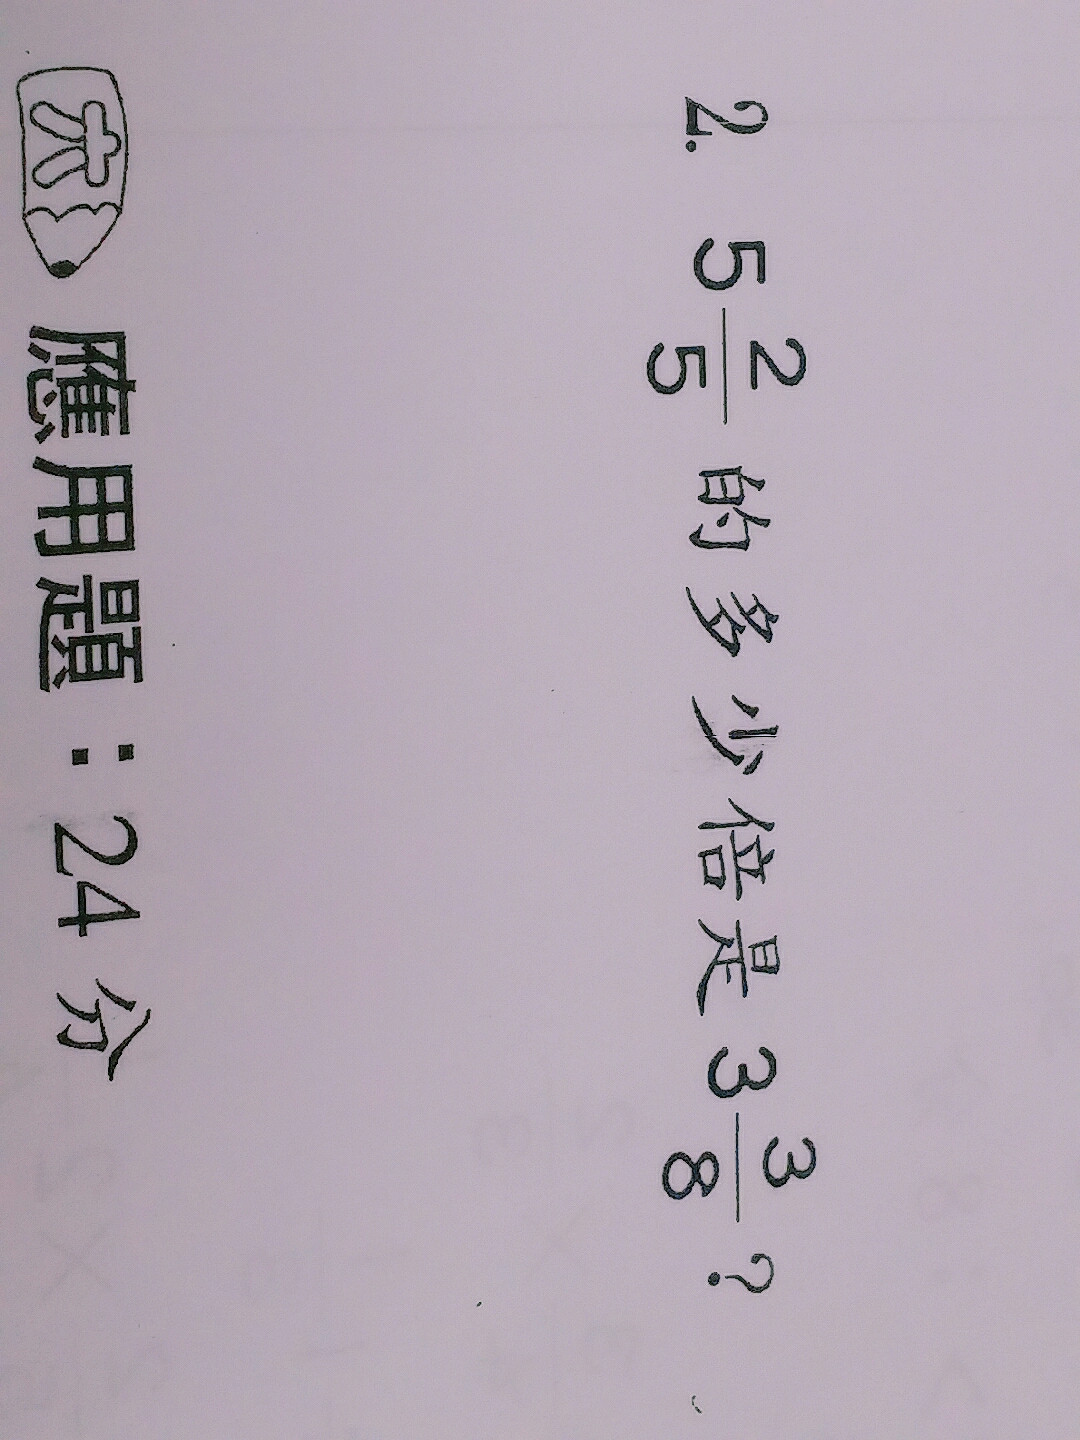 2. 5 2/5 的多少倍是 3 3/8 ?
六 應用題：24 分